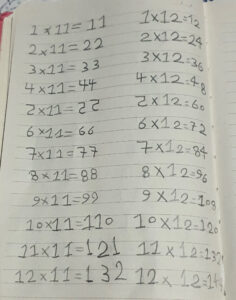 1×11=11
2×11=22
3×11=33
4×11=44
2×11=22
6×11=66
7×11=77
8×11=88
9×11=99
10×11=110
11×11=121
12×11=132
1×12=12
2×12=24
3×12=36
4×12=48
2×12=60
6×12=72
7×12=84
8×12=96
9×12=108
10×12=120
11×12=132
12×12=14